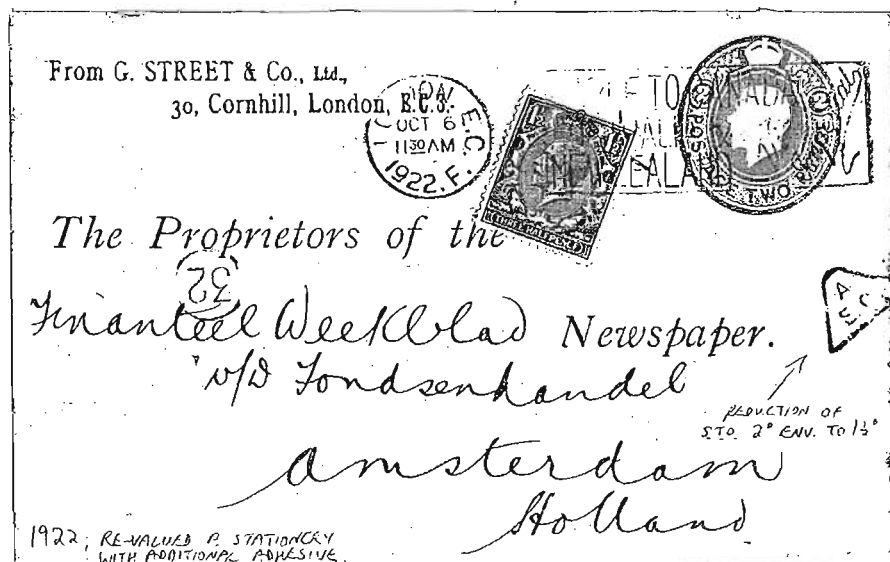 From G. STREET & Co., Ltd.,
30, Cornhill, London, E.C.3.
E.C.
OCT 6
11 30 AM
1922. F.
TWO PENCE
The Proprietors of the
32
Financieel Weekblad Newspaper.
v/d Fondsenhandel
Amsterdam
Holland
REDUCTION OF
STO. 2ᴰ ENV. TO 1½ᴰ
1922; RE-VALUED P. STATIONERY
WITH ADDITIONAL ADHESIVE.